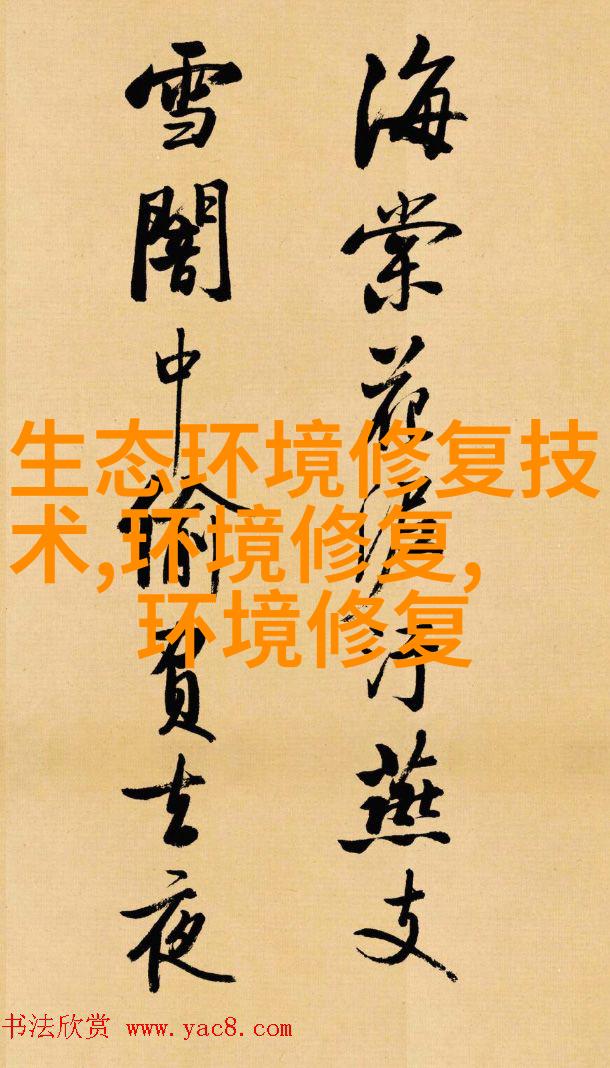 海棠花泥污燕支
雪闇中偷負去夜
生态环境修复技
术,环境修复,
环境修复
书法欣赏 www.yac8.com